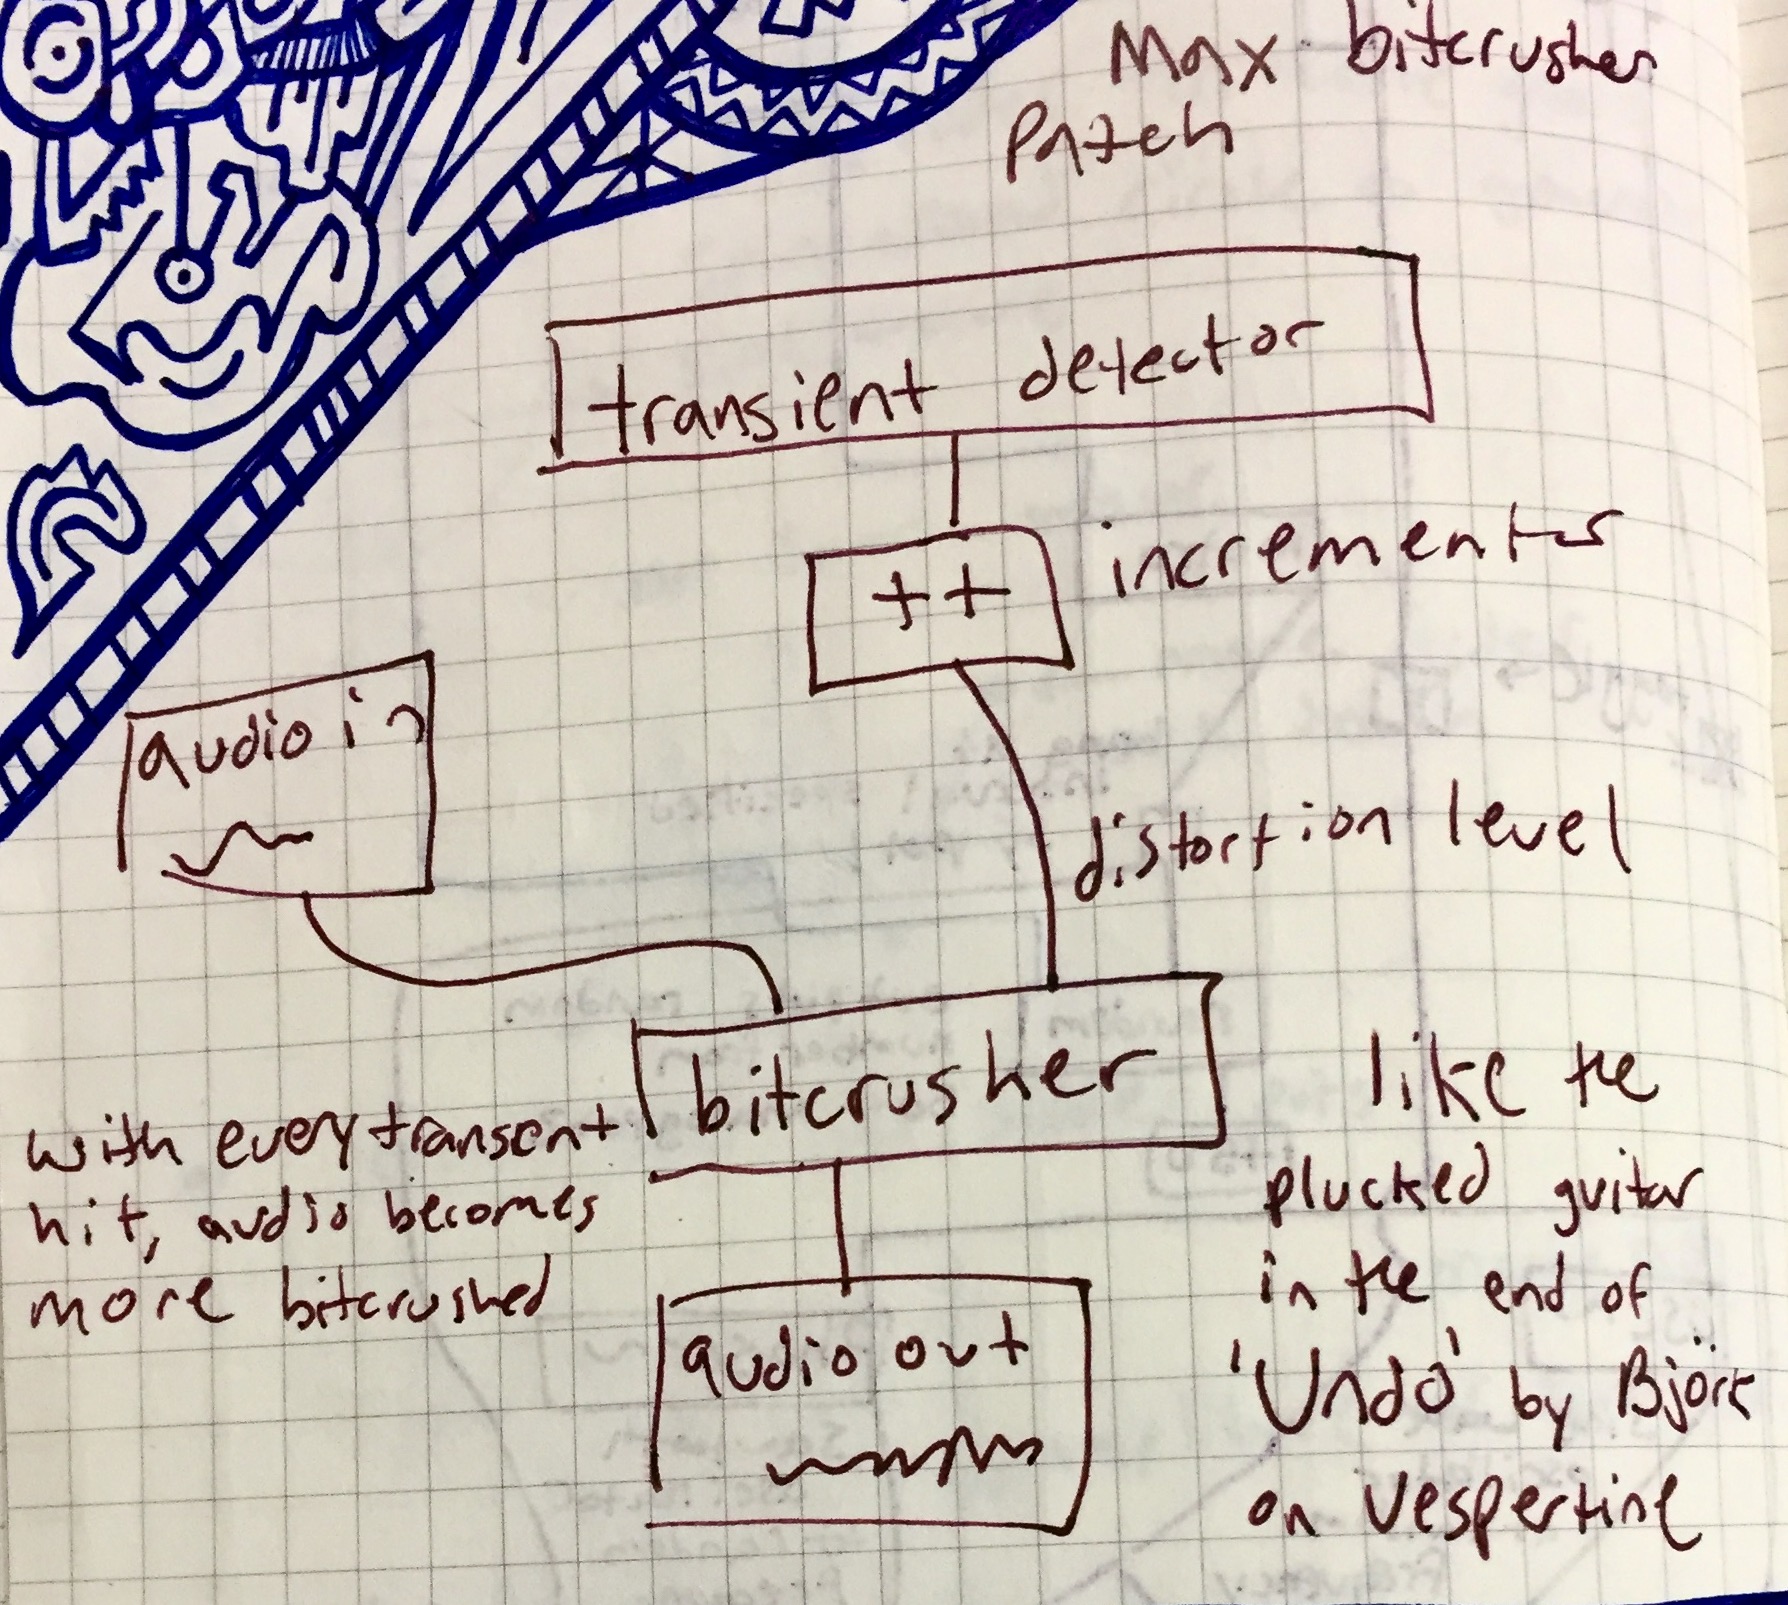 Max bitcrusher
Patch
transient detector
++
incrementor
audio in
distortion level
bitcrusher
with every transent
hit, audio becomes
more bitcrushed
audio out
like the
plucked guitar
in the end of
'Undo' by Björk
on Vespertine